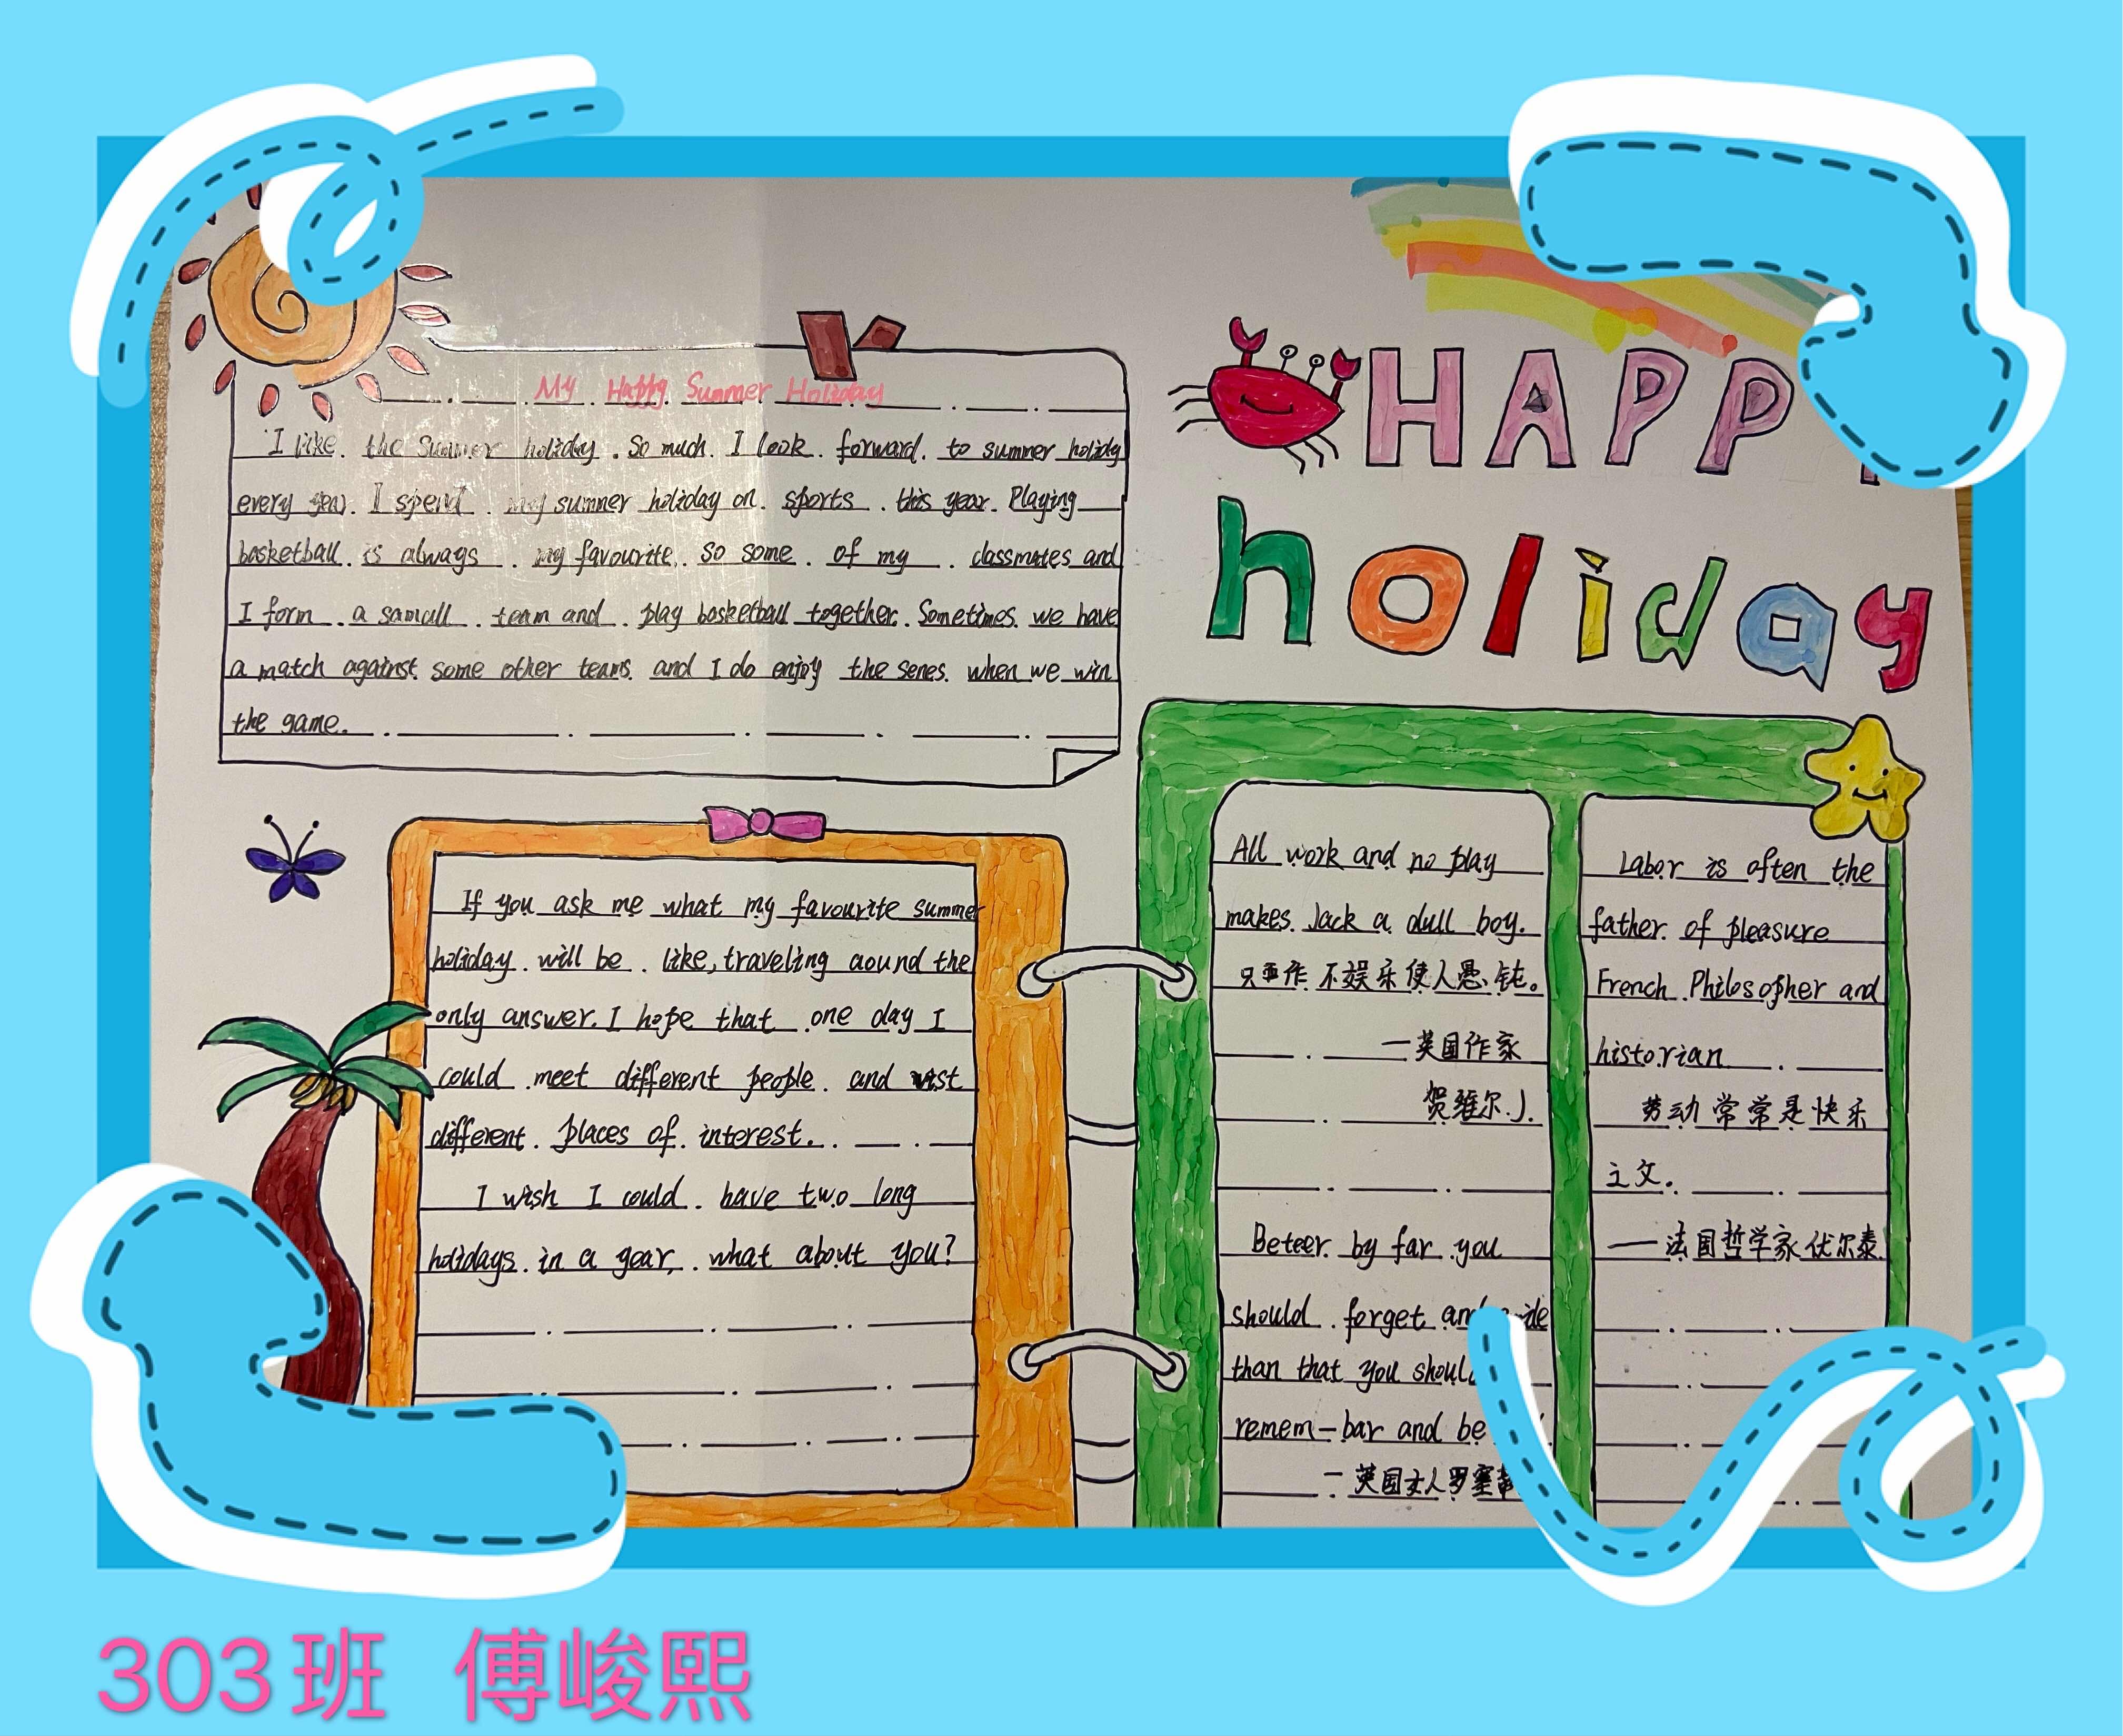 My Happy Summer Holiday
I like the summer holiday. So much I look forward to summer holidy
every year. I spend my summer holiday on sports this year. Playing
basketball is always my favourite. so some of my classmates and
I form a samall team and play basketball together. Sometimes we have
a match against some other teams and I do enjoy the senes when we win
the game.
HAPP
holiday
If you ask me what my favourite summer
holiday will be like, traveling aound the
only answer. I hope that one day I
could meet different people and vist
different places of interest.
I wish I could have two long
holidays in a year, what about you?
All work and no play
makes Jack a dull boy.
只工作不娱乐使人愚钝。
—英国作家
贺维尔.J.
Beteer by far you
should forget and
than that you shoul
remem-bar and be
—英国女人罗塞蒂
Labor is often the
father of pleasure
French Philosopher and
historian
劳动常常是快乐
之父。
—法国哲学家伏尔泰
303班 傅峻熙